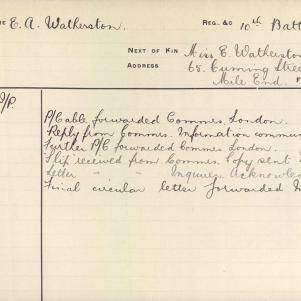 E. A. Watherston. REG. &c 10th Batt
NEXT OF KIN Miss E. Watherston
ADDRESS 68. Cuming Stree
Mile End.
P/Cable forwarded Commes. London.
Reply from Commes. Information commun
Further P/C forwarded Commes London.
Slip received from Commes. Copy sent
Letter " " Inquiry Acknowled
Final circular letter forwarded